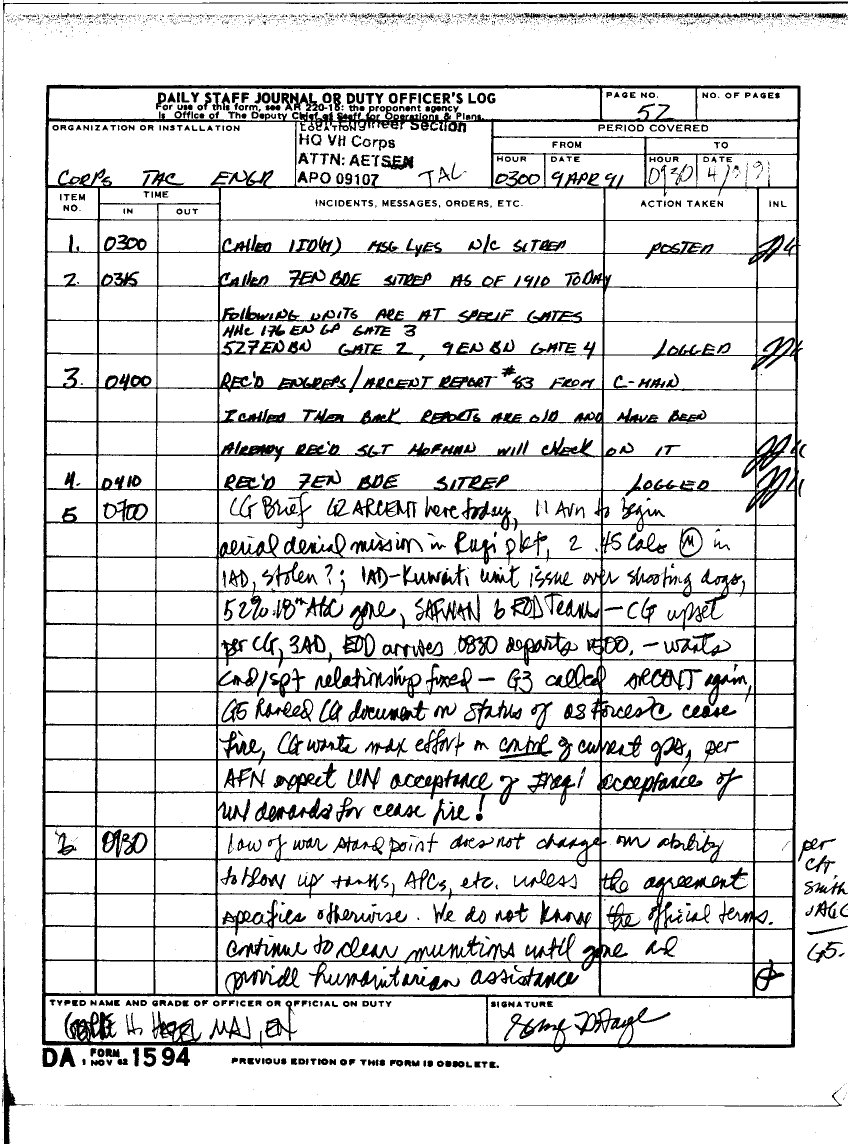 DAILY STAFF JOURNAL OR DUTY OFFICER'S LOG
For use of this form, see AR 220-15: the proponent agency
is Office of The Deputy Chief of Staff for Operations & Plans.
PAGE NO.
52
NO. OF PAGES
ORGANIZATION OR INSTALLATION
CORPS TAC ENGR
LOCATION
Engineer Section
HQ VII Corps
ATTN: AETSEN
APO 09107 TAC
PERIOD COVERED
FROM
TO
HOUR
0300
DATE
9 APR 91
HOUR
0930
DATE
4/9/91
ITEM NO.
TIME
IN
OUT
INCIDENTS, MESSAGES, ORDERS, ETC.
ACTION TAKEN
INL
1. 0300 CALLED 1ID(M) MSG LYES N/C SITREP POSTED
2. 0315 CALLED 7EN BDE SITREP AS OF 1910 TODAY
FOLLOWING UNITS ARE AT SPECIF GATES
HHC 176 EN GP GATE 3
527EN BN GATE 2, 9EN BN GATE 4 LOGGED
3. 0400 REC'D ENGREPS/ARCENT REPORT #83 FROM C-MAIN
I CALLED THEM BACK REPORTS ARE OLD AND HAVE BEEN
ALREADY REC'D SGT HOFMAN WILL CHECK ON IT
4. 0410 REC'D 7EN BDE SITREP LOGGED
5 0700 CG Brief G2 ARCENT here today, 11 Avn to begin
aerial denial mission in pkt, 2 .45 Cals (M) in
1AD, stolen?; 1AD-Kuwaiti unit issue over shooting dogs,
52% 18th ABC gone, SAFWAN 6 EOD Teams - CG upset
per CG, 3AD, EOD arrives 0830 departs 1500, - wants
cmd/spt relationship fixed - G3 called ARCENT again,
G5 handed CG document on Status of US Forces c cease
fire, CG wants max effort on control of current ops, per
AFN expect UN acceptance of Iraqi acceptance of
UN demands for cease fire!
6. 0930 Law of war stand point does not change our ability
to blow up tanks, APCs, etc. unless the agreement
specifies otherwise. We do not know the official terms.
continue to clear munitions until gone and
provide humanitarian assistance
per
CPT
Smith
JAGC
G5.
TYPED NAME AND GRADE OF OFFICER OR OFFICIAL ON DUTY
GEORGE H. MAJ, EN
SIGNATURE
DA FORM 1 NOV 62 1594
PREVIOUS EDITION OF THIS FORM IS OBSOLETE.